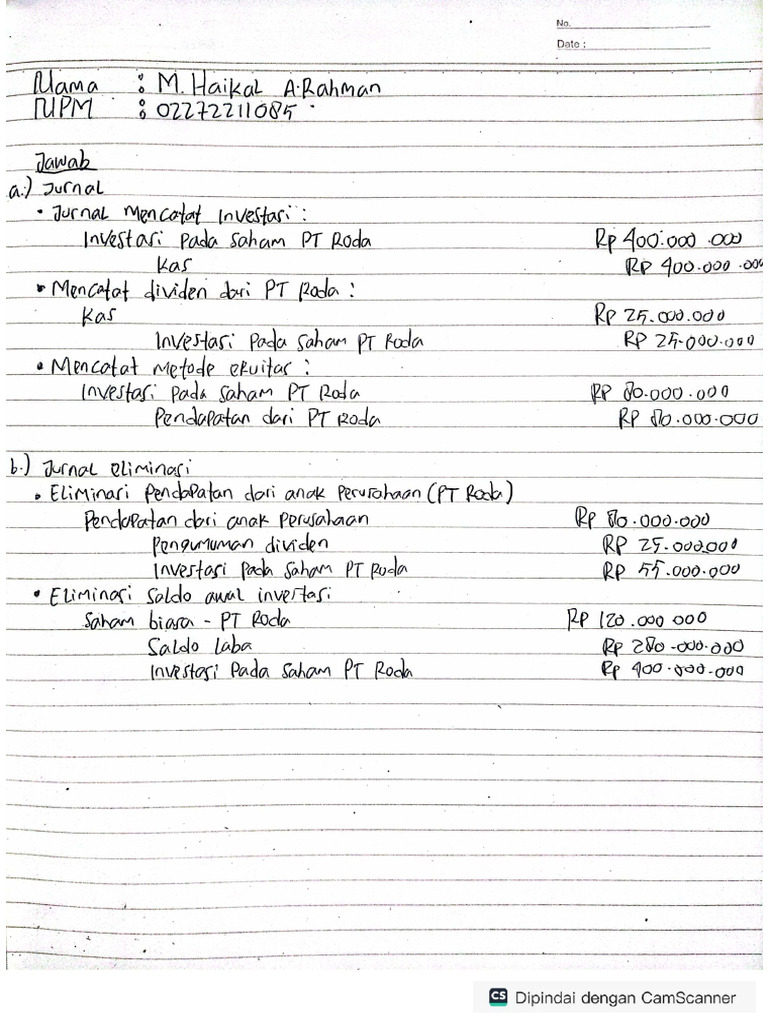 No.
Date :
Nama : M. Haikal A.Rahman
NPM : 02272211085
Jawab
a.) Jurnal
• Jurnal Mencatat Investasi :
Investasi Pada Saham PT Roda Rp 400.000.000
Kas Rp 400.000.000
• Mencatat dividen dari PT Roda :
Kas Rp 25.000.000
Investasi Pada saham PT Roda Rp 25.000.000
• Mencatat Metode ekuitas :
Investasi Pada Saham PT Roda Rp 80.000.000
Pendapatan dari PT Roda Rp 80.000.000
b.) Jurnal eliminasi
• Eliminasi Pendapatan dari anak Perusahaan (PT Roda)
Pendapatan dari anak Perusahaan Rp 80.000.000
Pengumuman dividen Rp 25.000.000
Investasi Pada Saham PT Roda Rp 55.000.000
• Eliminasi Saldo awal investasi
Saham biasa - PT Roda Rp 120.000 000
Saldo Laba Rp 280.000.000
Investasi Pada Saham PT Roda Rp 400.000.000
CS Dipindai dengan CamScanner